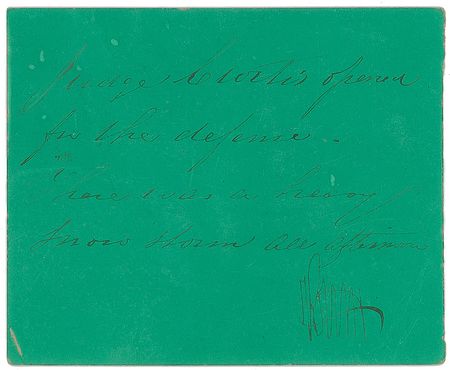 Judge Curtis opened
for the defense.
There was a heavy
snow storm all afternoon